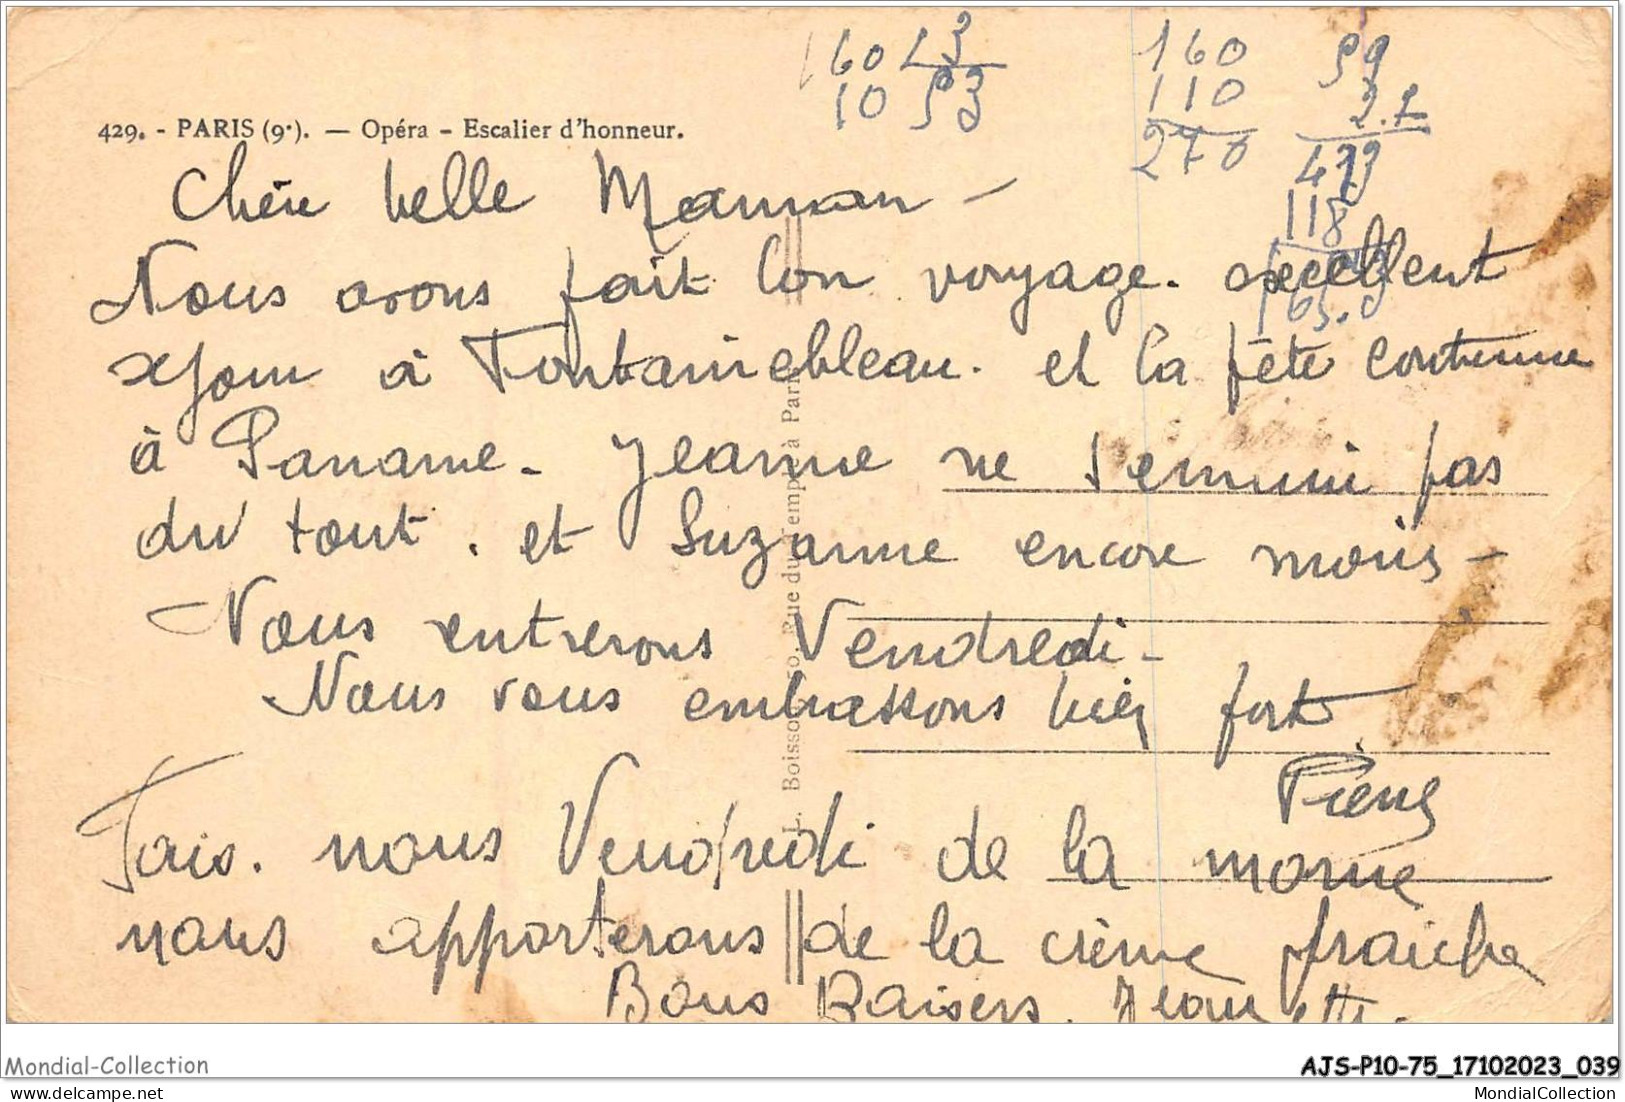 160 43 160 59
10 53 110 2.1
429. - PARIS (9e). — Opéra - Escalier d'honneur.
270 479
118
Chère belle Maman -
Nous avons fait bon voyage. excellent
séjour à Fontainebleau. et la fête continue
à Paname - Jeanne ne s'ennuie pas
du tout. et Suzanne encore moins -
Nous rentrerons Vendredi -
Nous vous embrassons bien fort
Pierre
Fais. nous Vendredi de la morue
nous apporterons de la crème fraiche
Bons Baisers. Jeannette.
L. Boisson, Rue du Temple à Paris
Mondial-Collection
AJS-P10-75_17102023_039
MondialCollection